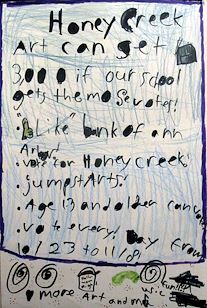 Honey Creek
Art can get
3000 if our school
gets the most votes!
"Like" bank of ann
Arbor!
vote for Honey Creek!
Jumpstarts!
Age 13 and older can
vote every Day from
10/23 to 11/8!
more Art and